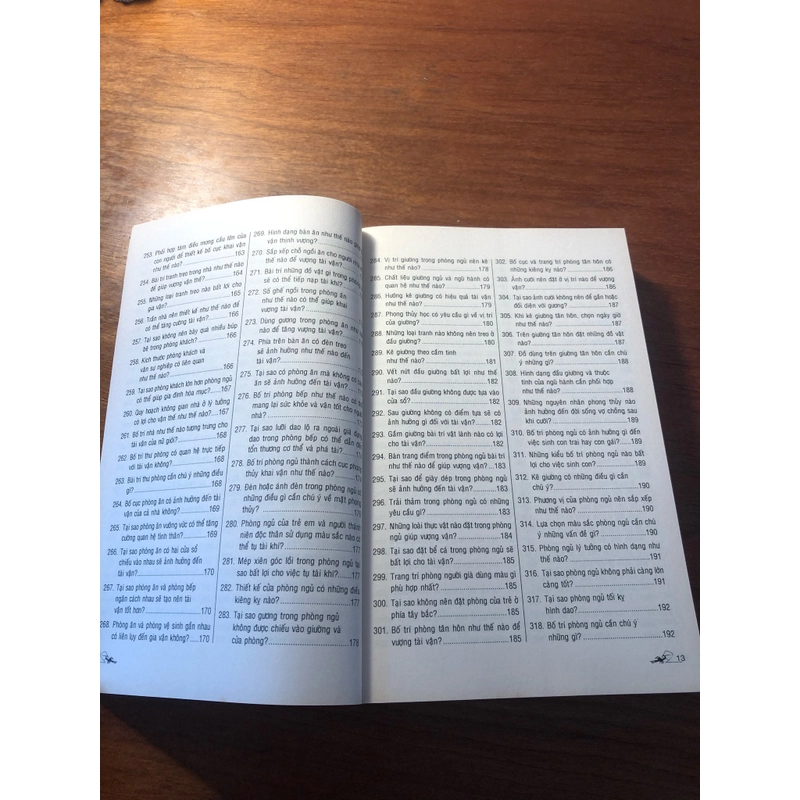 253. Phối hợp tám điều mong cầu lớn của
con người để thiết kế bố cục khai vận
như thế nào?.....................163
254. Bài trí tranh treo trong nhà như thế nào
để giúp vượng vận?..................164
255. Những loại tranh treo nào bất lợi cho
gia vận?...........................165
256. Trần nhà nên thiết kế như thế nào để
có thể tăng cường tài vận?..........165
257. Tại sao không nên bày quá nhiều búp
bê trong phòng khách?...............166
258. Kích thước phòng khách và
vận sự nghiệp có liên quan
như thế nào?.......................166
259. Tại sao phòng khách lớn hơn phòng ngủ
có thể giúp gia đình hòa mục?.......167
260. Quy hoạch không gian nhà ở lý tưởng
có lợi cho vận thế như thế nào?.....168
261. Bố trí nhà như thế nào tương trưng cho
tài vận của nữ giới?................168
262. Bố trí thư phòng có quan hệ trực tiếp
với tài vận không?..................168
263. Bài trí thư phòng cần chú ý những điều
gì?................................168
264. Bố cục phòng ăn có ảnh hưởng đến tài
vận của cả nhà không?...............169
265. Tại sao phòng ăn vuông vức có thể tăng
cường quan hệ tình thân?............169
266. Tại sao phòng ăn có hai cửa sổ
chiếu vào nhau sẽ ảnh hưởng đến
tài vận?...........................170
267. Tại sao phòng ăn và phòng bếp
ngăn cách nhau sẽ tạo nên tài
vận tốt hơn?.......................170
268. Phòng ăn và phòng vệ sinh gần nhau
có liên lụy đến gia vận không?......170
269. Hình dạng bàn ăn như thế nào giúp
vận thịnh vượng?
270. Sắp xếp chỗ ngồi ăn cho người
thế nào để vượng tài vận?
271. Bài trí những đồ vật gì trong phòng
sẽ có thể tiếp nạp tài khí?
272. Số ghế ngồi trong phòng ăn
như thế nào có thể giúp khai
vượng tài vận?
273. Dùng gương trong phòng ăn như
nào để tăng vượng tài vận?
274. Phía trên bàn ăn có đèn treo
sẽ ảnh hưởng như thế nào đến
tài vận?
275. Tại sao có phòng ăn mà không
ăn sẽ ảnh hưởng đến tài vận?
276. Bố trí phòng bếp như thế nào để
mang lại sức khỏe và tài vận cho
nhà?
277. Tại sao lưỡi dao lộ ra ngoài giá
dao trong phòng bếp có thể
tổn thương cơ thể và phá tài?
278. Bố trí phòng ngủ thành cách cục phong
thủy khai vận như thế nào?
279. Đèn hoặc ánh đèn trong phòng ngủ có
những điều gì cần chú ý về mặt phong
thủy?
280. Phòng ngủ của trẻ em và người thành
niên độc thân sử dụng màu sắc nào có
thể tụ tài khí?....................177
281. Mép xiên góc lồi trong phòng ngủ tại
sao bất lợi cho việc tụ tài khí?....177
282. Thiết kế của phòng ngủ có những điều
kiêng kỵ nào?......................177
283. Tại sao gương trong phòng ngủ
không được chiếu vào giường và
cửa phòng?.........................178
284. Vị trí giường trong phòng ngủ nên kê
như thế nào?.......................178
285. Chất liệu giường ngủ và ngũ hành có
quan hệ như thế nào?................179
286. Hướng kê giường có hiệu quả tài vận
như thế nào?.......................179
287. Phong thủy học có yêu cầu gì về vị trí
của giường?........................180
288. Những loại tranh nào không nên treo ở
đầu giường?........................180
289. Kê giường theo cầm tinh
như thế nào?.......................181
290. Vết nứt đầu giường bất lợi như thế
nào?...............................182
291. Tại sao đầu giường không được tựa vào
cửa sổ?............................182
292. Sau giường không có điểm tựa sẽ có
ảnh hưởng gì đối với tài vận?.......182
293. Gầm giường bài trí vật lành nào có lợi
cho tài vận?.......................182
294. Bàn trang điểm trong phòng ngủ bài trí
như thế nào để giúp vượng vận?......182
295. Tại sao để giày dép trong phòng ngủ
sẽ ảnh hưởng đến tài vận?...........183
296. Trải thảm trong phòng ngủ có những
yêu cầu gì?........................183
297. Những loài thực vật nào đặt trong phòng
ngủ giúp vượng vận?.................184
298. Tại sao đặt bể cá trong phòng ngủ sẽ
bất lợi cho tài vận?................185
299. Trang trí phòng người già dùng màu gì
phù hợp nhất?......................185
300. Tại sao không nên đặt phòng của trẻ ở
phía tây bắc?......................185
301. Bố trí phòng tân hôn như thế nào để
vượng tài vận?.....................185
302. Bố cục và trang trí phòng tân hôn có
những kiêng kỵ nào?.................186
303. Ảnh cưới nên đặt ở vị trí nào để vượng
vận?...............................186
304. Tại sao ảnh cưới không nên để gần hoặc
đối diện với gương?.................187
305. Khi kê giường tân hôn, chọn ngày giờ
như thế nào?.......................187
306. Trên giường tân hôn nên đặt những đồ vật
nào?...............................187
307. Đồ dùng trên giường tân hôn cần chú
ý những gì?........................188
308. Hình dạng đầu giường và thuộc
tính của ngũ hành cần phối hợp
như thế nào?.......................188
309. Những nguyên nhân phong thủy nào
ảnh hưởng đến đời sống vợ chồng sau
khi cưới?..........................189
310. Bố trí phòng ngủ có ảnh hưởng gì đến
việc sinh con trai hay con gái?.....189
311. Những kiểu bố trí phòng ngủ nào bất
lợi cho việc sinh con?..............189
312. Kê giường có những điều gì cần
chú ý?.............................190
313. Phương vị của phòng ngủ nên sắp xếp
như thế nào?.......................190
314. Lựa chọn màu sắc phòng ngủ cần chú
ý những vấn đề gì?..................190
315. Phòng ngủ lý tưởng có hình dạng như
thế nào?...........................191
316. Tại sao phòng ngủ không phải càng lớn
càng tốt?..........................191
317. Tại sao phòng ngủ tối kỵ
hình dao?..........................192
318. Bố trí phòng ngủ cần chú ý
những gì?..........................192
13